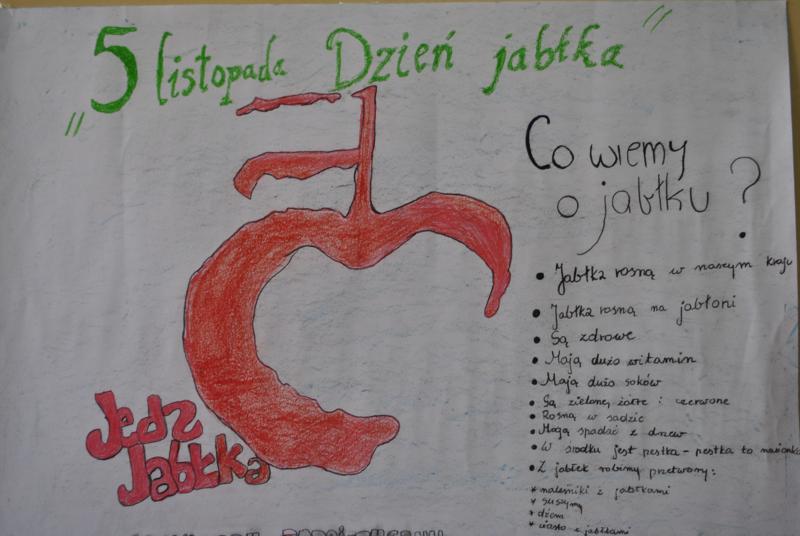 „5 listopada Dzień jabłka”
Co wiemy
o jabłku ?
• Jabłka rosną w naszym kraju
• Jabłka rosną na jabłoni
• Są zdrowe
• Mają dużo witamin
• Mają dużo soków
• Są zielone, żółte i czerwone
• Rosną w sadzie
• Mogą spadać z drzew
• W środku jest pestka - pestka to nasionko
• Z jabłek robimy przetwory:
* naleśniki z jabłkami
* suszymy
* dżem
* ciasto z jabłkami
Jedz
Jabłka